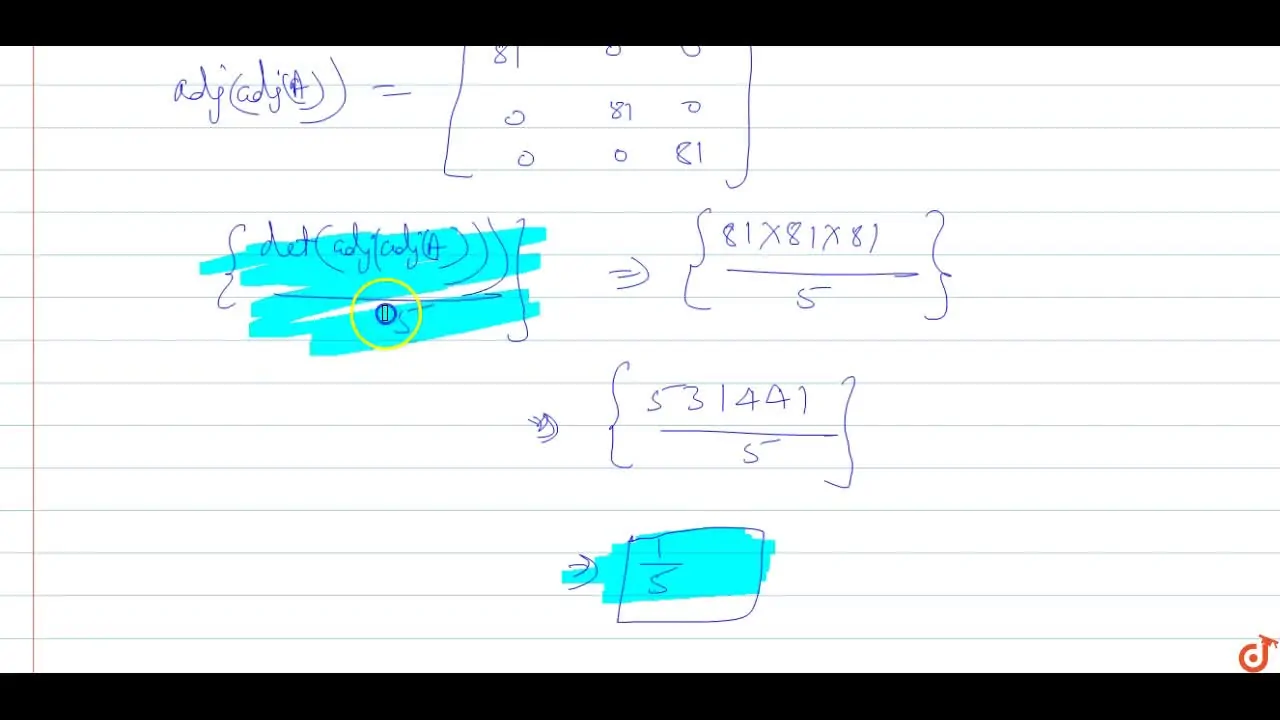 81 0 0
adj(adj(A)) =
0 81 0
0 0 81
{ det(adj(adj(A))) / 5 } ⇒ { 81×81×81 / 5 }
⇒ { 531441 / 5 }
⇒ 1/5